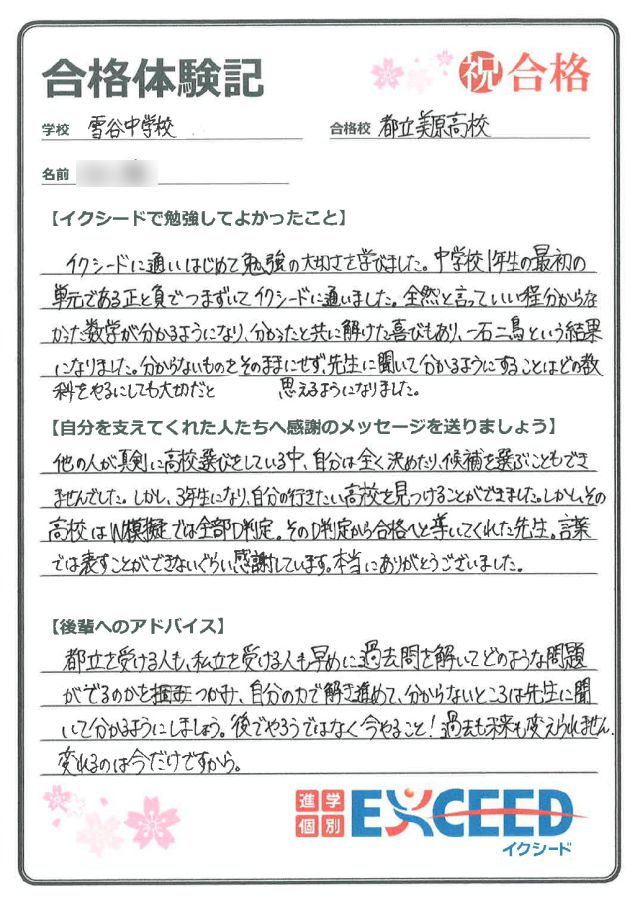 合格体験記
祝 合格
学校 雪谷中学校 合格校 都立美原高校
名前
【イクシードで勉強してよかったこと】
イクシードに通いはじめて勉強の大切さを学びました。中学校1年生の最初の
単元である正と負でつまずいてイクシードに通いました。全然と言っていい程分からな
かった数学が分かるようになり、分かったと共に解けた喜びもあり、一石二鳥という結果
になりました。分からないものをそのままにせず、先生に聞いて分かるようにすることはどの教
科をやるにしても大切だと 思えるようになりました。
【自分を支えてくれた人たちへ感謝のメッセージを送りましょう】
他の人が真剣に高校選びをしている中、自分は全く決めたり、候補を選ぶこともでき
ませんでした。しかし、3年生になり、自分の行きたい高校を見つけることができました。しかし、その
高校はW模擬では全部D判定。そのD判定から合格へと導いてくれた先生。言葉
では表すことができないぐらい感謝しています。本当にありがとうございました。
【後輩へのアドバイス】
都立を受ける人も、私立を受ける人も早めに過去問を解いてどのような問題
がでるのかを つかみ、自分の力で解き進めて、分からないところは先生に聞
いて分かるようにしましょう。後でやろうではなく今やること!過去も未来も変えられません。
変れるのは今だけですから。
進学
個別 EXCEED
イクシード